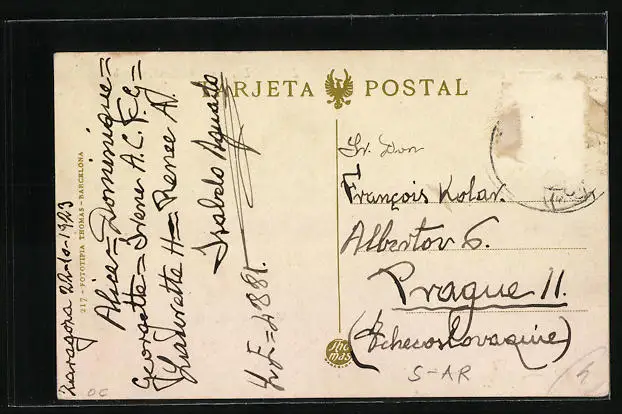 TARJETA POSTAL
217 - FOTOTIPIA THOMAS - BARCELONA
Zaragoza 22-10-1923
Alice = Dominique =
Georgette = Irene A.C.
H = Renee A.
Isabelo Aguado
L.E = 4881.
Sr. Don
François Kolar.
Albertov 6.
Prague II.
(Tchecoslovaquie)
Thomas
S-AR